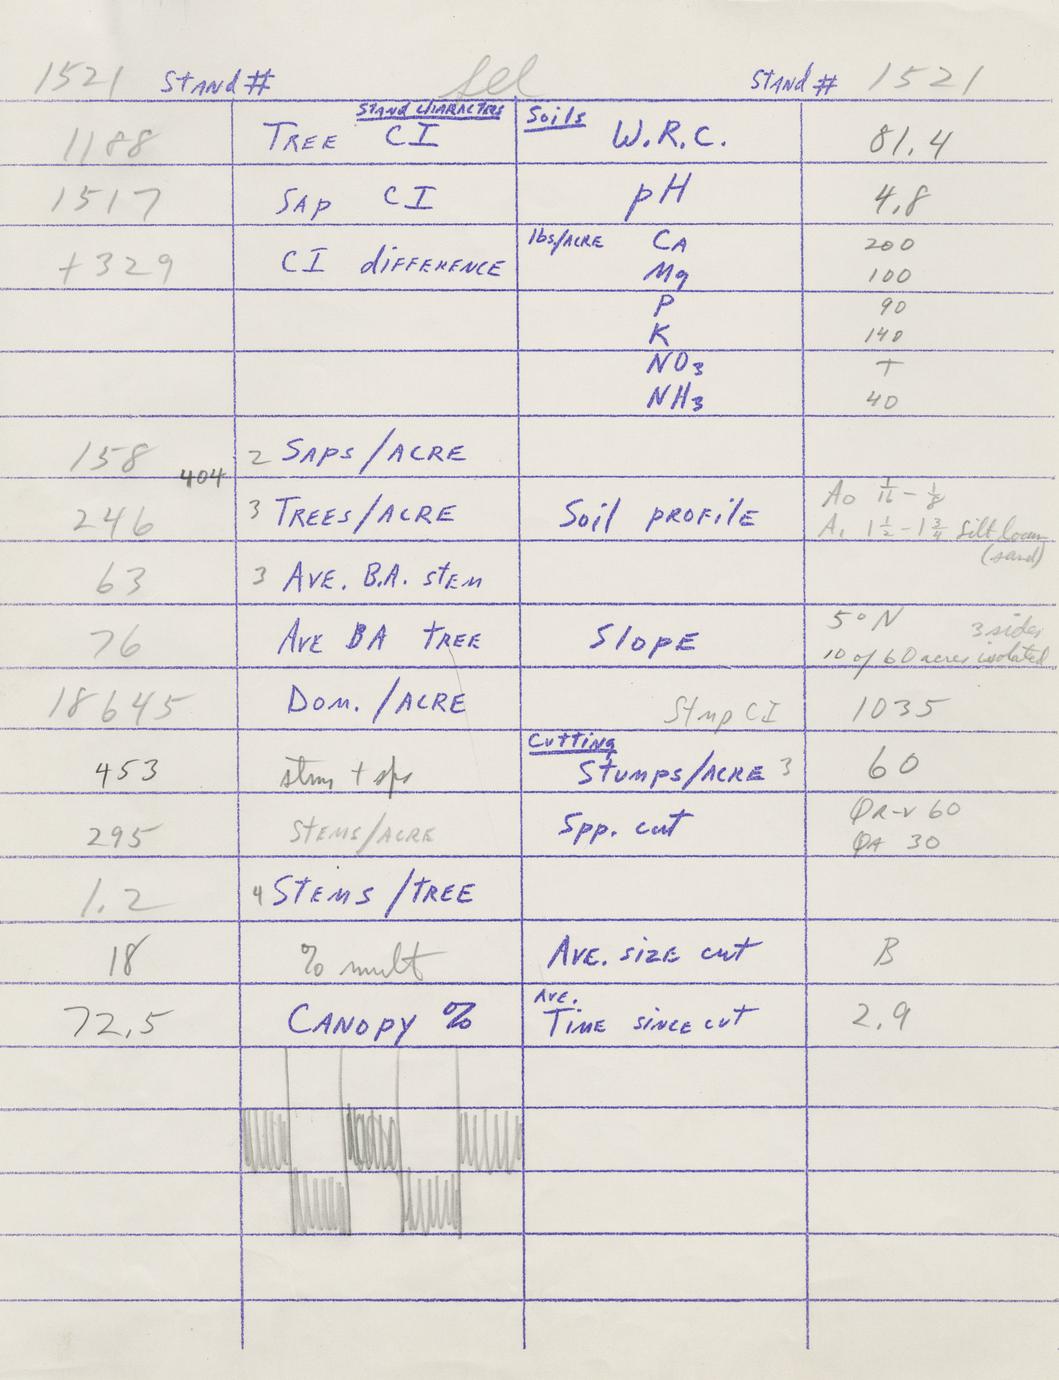 1521 STAND# Sel STAND# 1521
STAND CHARACTERS Soils
1188 TREE CI W.R.C. 81.4
1517 SAP CI pH 4.8
+329 CI DIFFERENCE lbs/ACRE CA 200
Mg 100
P 90
K 140
NO3 T
NH3 40
158 2 SAPS/ACRE
404
246 3 TREES/ACRE Soil PROFILE A0 1/16 - 1/8
A1 1 1/2 - 1 3/4 Silt loam
(sand)
63 3 AVE. B.A. STEM
76 AVE BA TREE SLOPE 5° N 3 sides
10 of 60 acres isolated
18645 DOM. /ACRE Stmp CI 1035
Cutting
453 stms + sps STUMPS/ACRE 3 60
295 STEMS/ACRE Spp. cut QR-V 60
QA 30
1.2 4 STEMS /TREE
18 % mult AVE. SIZE cut B
72.5 CANOPY % AVE. TIME SINCE cut 2.9